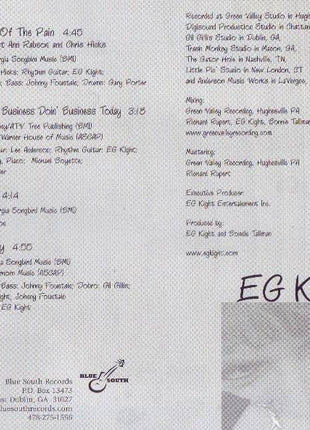 Of The Pain 4:45
rt Ann Rabson and Chris Hicks
gia Songbird Music (BMI)
Hicks; Rhythm Guitar: EG Kight;
; Bass: Johnny Fountain; Drums: Gary Porter
Business Doin' Business Today 3:18
ny/ATV Tree Publishing (BMI)
Warner House of Music (ASCAP)
ur: Lee Anderson; Rhythm Guitar: EG Kight;
Piano: Manuel Boyette;
4:14
rgia Songbird Music (BMI)
y 4:55
ia Songbird Music (BMI)
mom Music (ASCAP)
Bass: Johnny Fountain; Dobro: Gil Gillis;
Kight, Johnny Fountain
EG Kight
Blue South Records
P.O. Box 13473
ast Dublin, GA 31027
luesouthrecords.com
478-275-1556
BLUE SOUTH
Recorded at Green Valley Studio in Hughe
Digisound Productions Studio in Chattan
Gil Gillis Studio in Dublin, GA,
Tram Monkey Studio in Macon, GA,
The Gator Hole in Nashville, TN,
Little Pie' Studio in New London, CT
and Anderson Music Works in LaVergne,
Mixing:
Green Valley Recording, Hughesville PA
Richard Rupert, EG Kight, Bonnie Tallman
www.greenvalleyrecording.com
Mastering:
Green Valley Recording, Hughesville PA
Richard Rupert
Executive Producer:
EG Kight Entertainment Inc.
Produced by
EG Kight and Bonnie Tallman
www.egkight.com
EG K